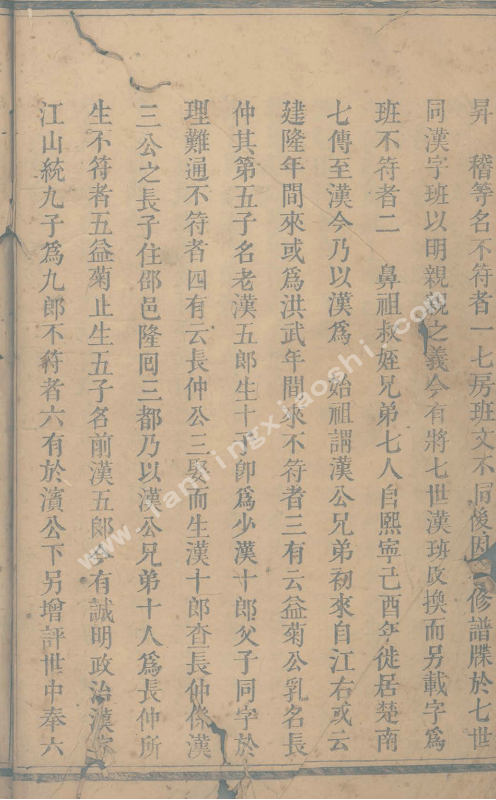 昇　稽等名不符者一七房班文不同後因 修譜牒於七世
同漢字班以明親親之義今有將七世漢班改換而另載字爲
班不符者二　鼻祖叔姪兄弟七人自熙寧己酉年徙居楚南
七傳至漢今乃以漢爲　始祖謂漢公兄弟初來自江右或云
建隆年間來或爲洪武年間來不符者三有云益菊公乳名長
仲其第五子名老漢五郎生十子卽爲少漢十郎父子同字於
理難通不符者四有云長仲公三娶而生漢十郎查長仲係漢
三公之長子住邵邑隆回三都乃以漢公兄弟十人爲長仲所
生不符者五益菊止生五子名前漢五郎 有誠明政治漢家
江山統九子爲九郎不符者六有於濱公下另增評世中奉六
www.wantingxiaoshi.com